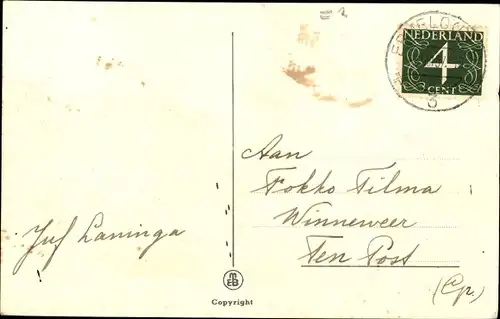 NEDERLAND
4
CENT
Aan
Fokko Tilma
Winneweer
Ten Post
(Gr.)
Juf Laninga
mEB
Copyright